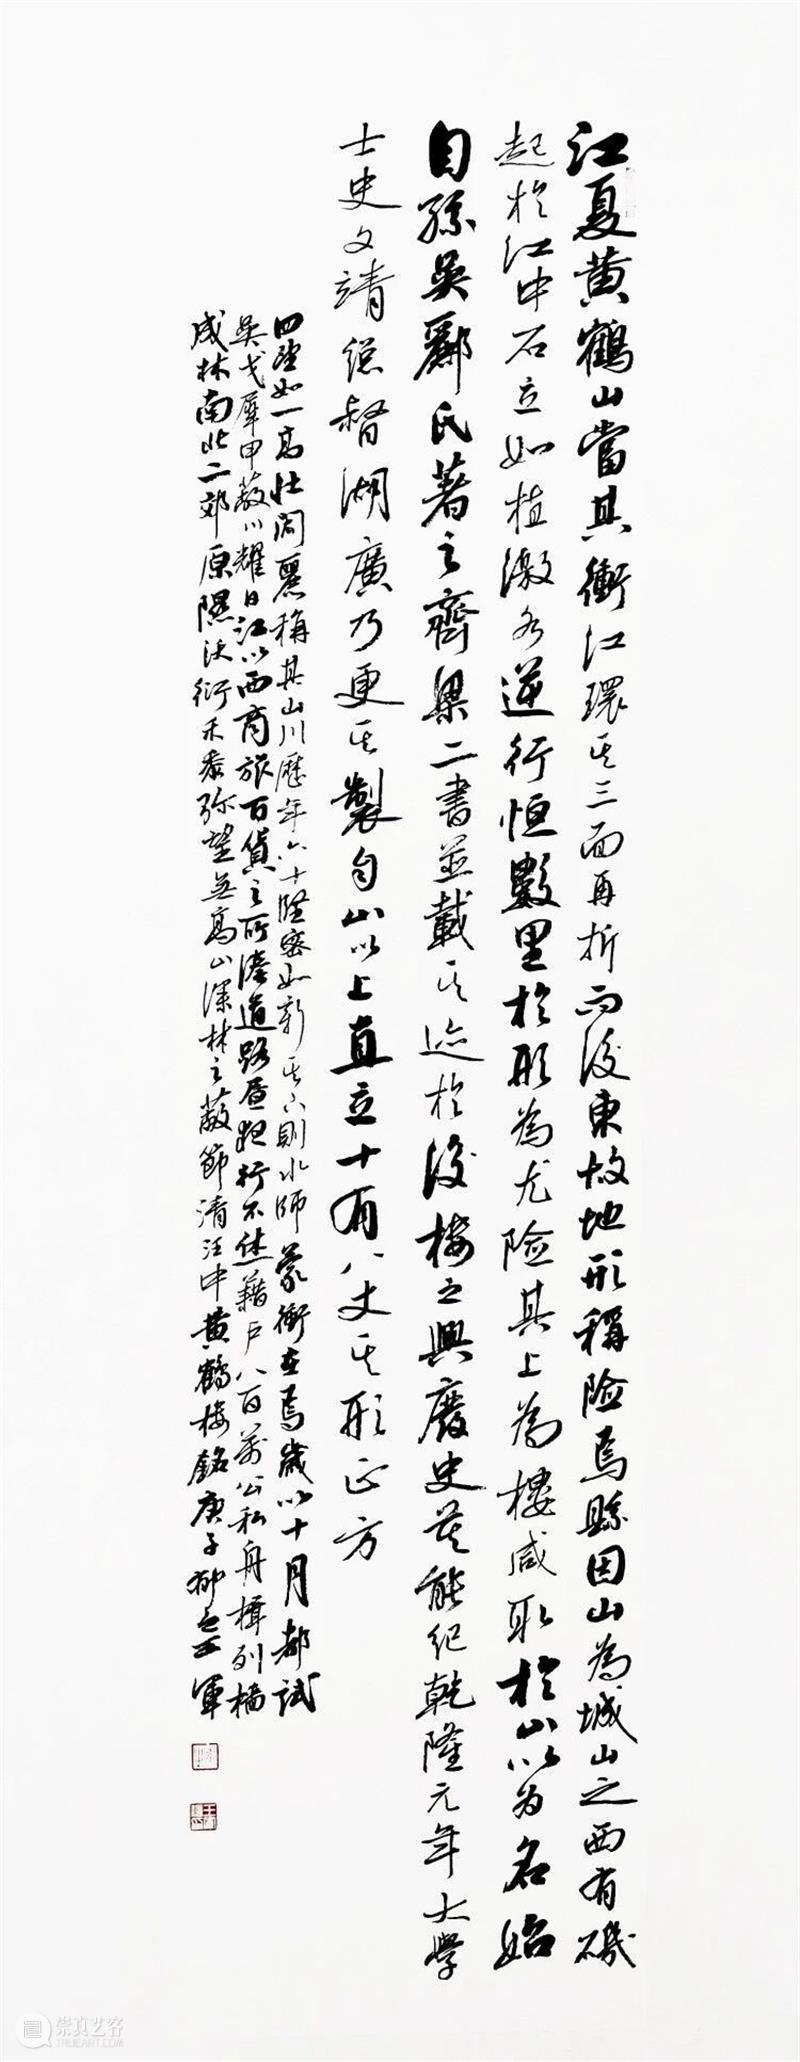 江夏黄鶴山當其衝江環其三面再折而後東故地形稱險焉縣因山為城山之西有磯
起於江中石立如植激水逆行恒數里於形為尤險其上為樓咸取於山以为名始
自孫吴酈氏著之齊梁二書並載其迹於後樓之興廢史莫能纪乾隆元年大學
士史文靖總督湖廣乃更其製自山以上直立十有八丈其形正方
四望如一高壯闳麗稱其山川歷年六十隆密如新其下則水師蒙衝在焉歲以十月都試
吴戈犀甲蔽川耀日江以西商旅百貨之所湊道路晝夜行不休籍戶八百萬公私舟楫列檣
成林南北二郊原隰沃衍禾黍弥望無高山深林之蔽節清汪中黄鶴樓銘庚子柳
軍
崇真艺客
TRUEART.COM